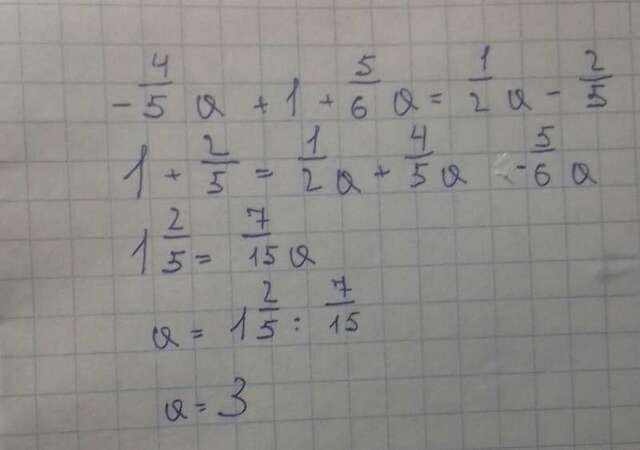 -4/5 a + 1 + 5/6 a = 1/2 a - 2/5
1 + 2/5 = 1/2 a + 4/5 a - 5/6 a
1 2/5 = 7/15 a
a = 1 2/5 : 7/15
a = 3